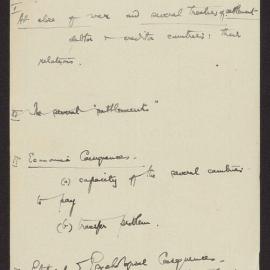 I
At close of war and several treaties of settlement
debtor & creditor countries: their
relations.
II The several "settlements"
III Economic Consequences.
(a) capacity of the several countries
to pay
(b) transfer problem.
& Psychological Consequences